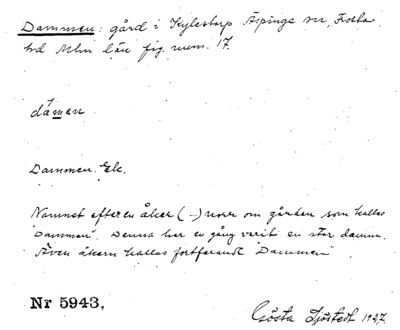 Dammen: gård i Kylestorp Äspinge sn, Frosta
hd Mlm län fig. num. 17.
dámen
Dammen. Ek.
Namnet efter en åker (-) norr om gården som kallas
"Dammen". Denna har en gång varit en stor damm.
Även åkern kallas fortfarande "Dammen"
Nr 5943,
Gösta Sjöstedt 1927.